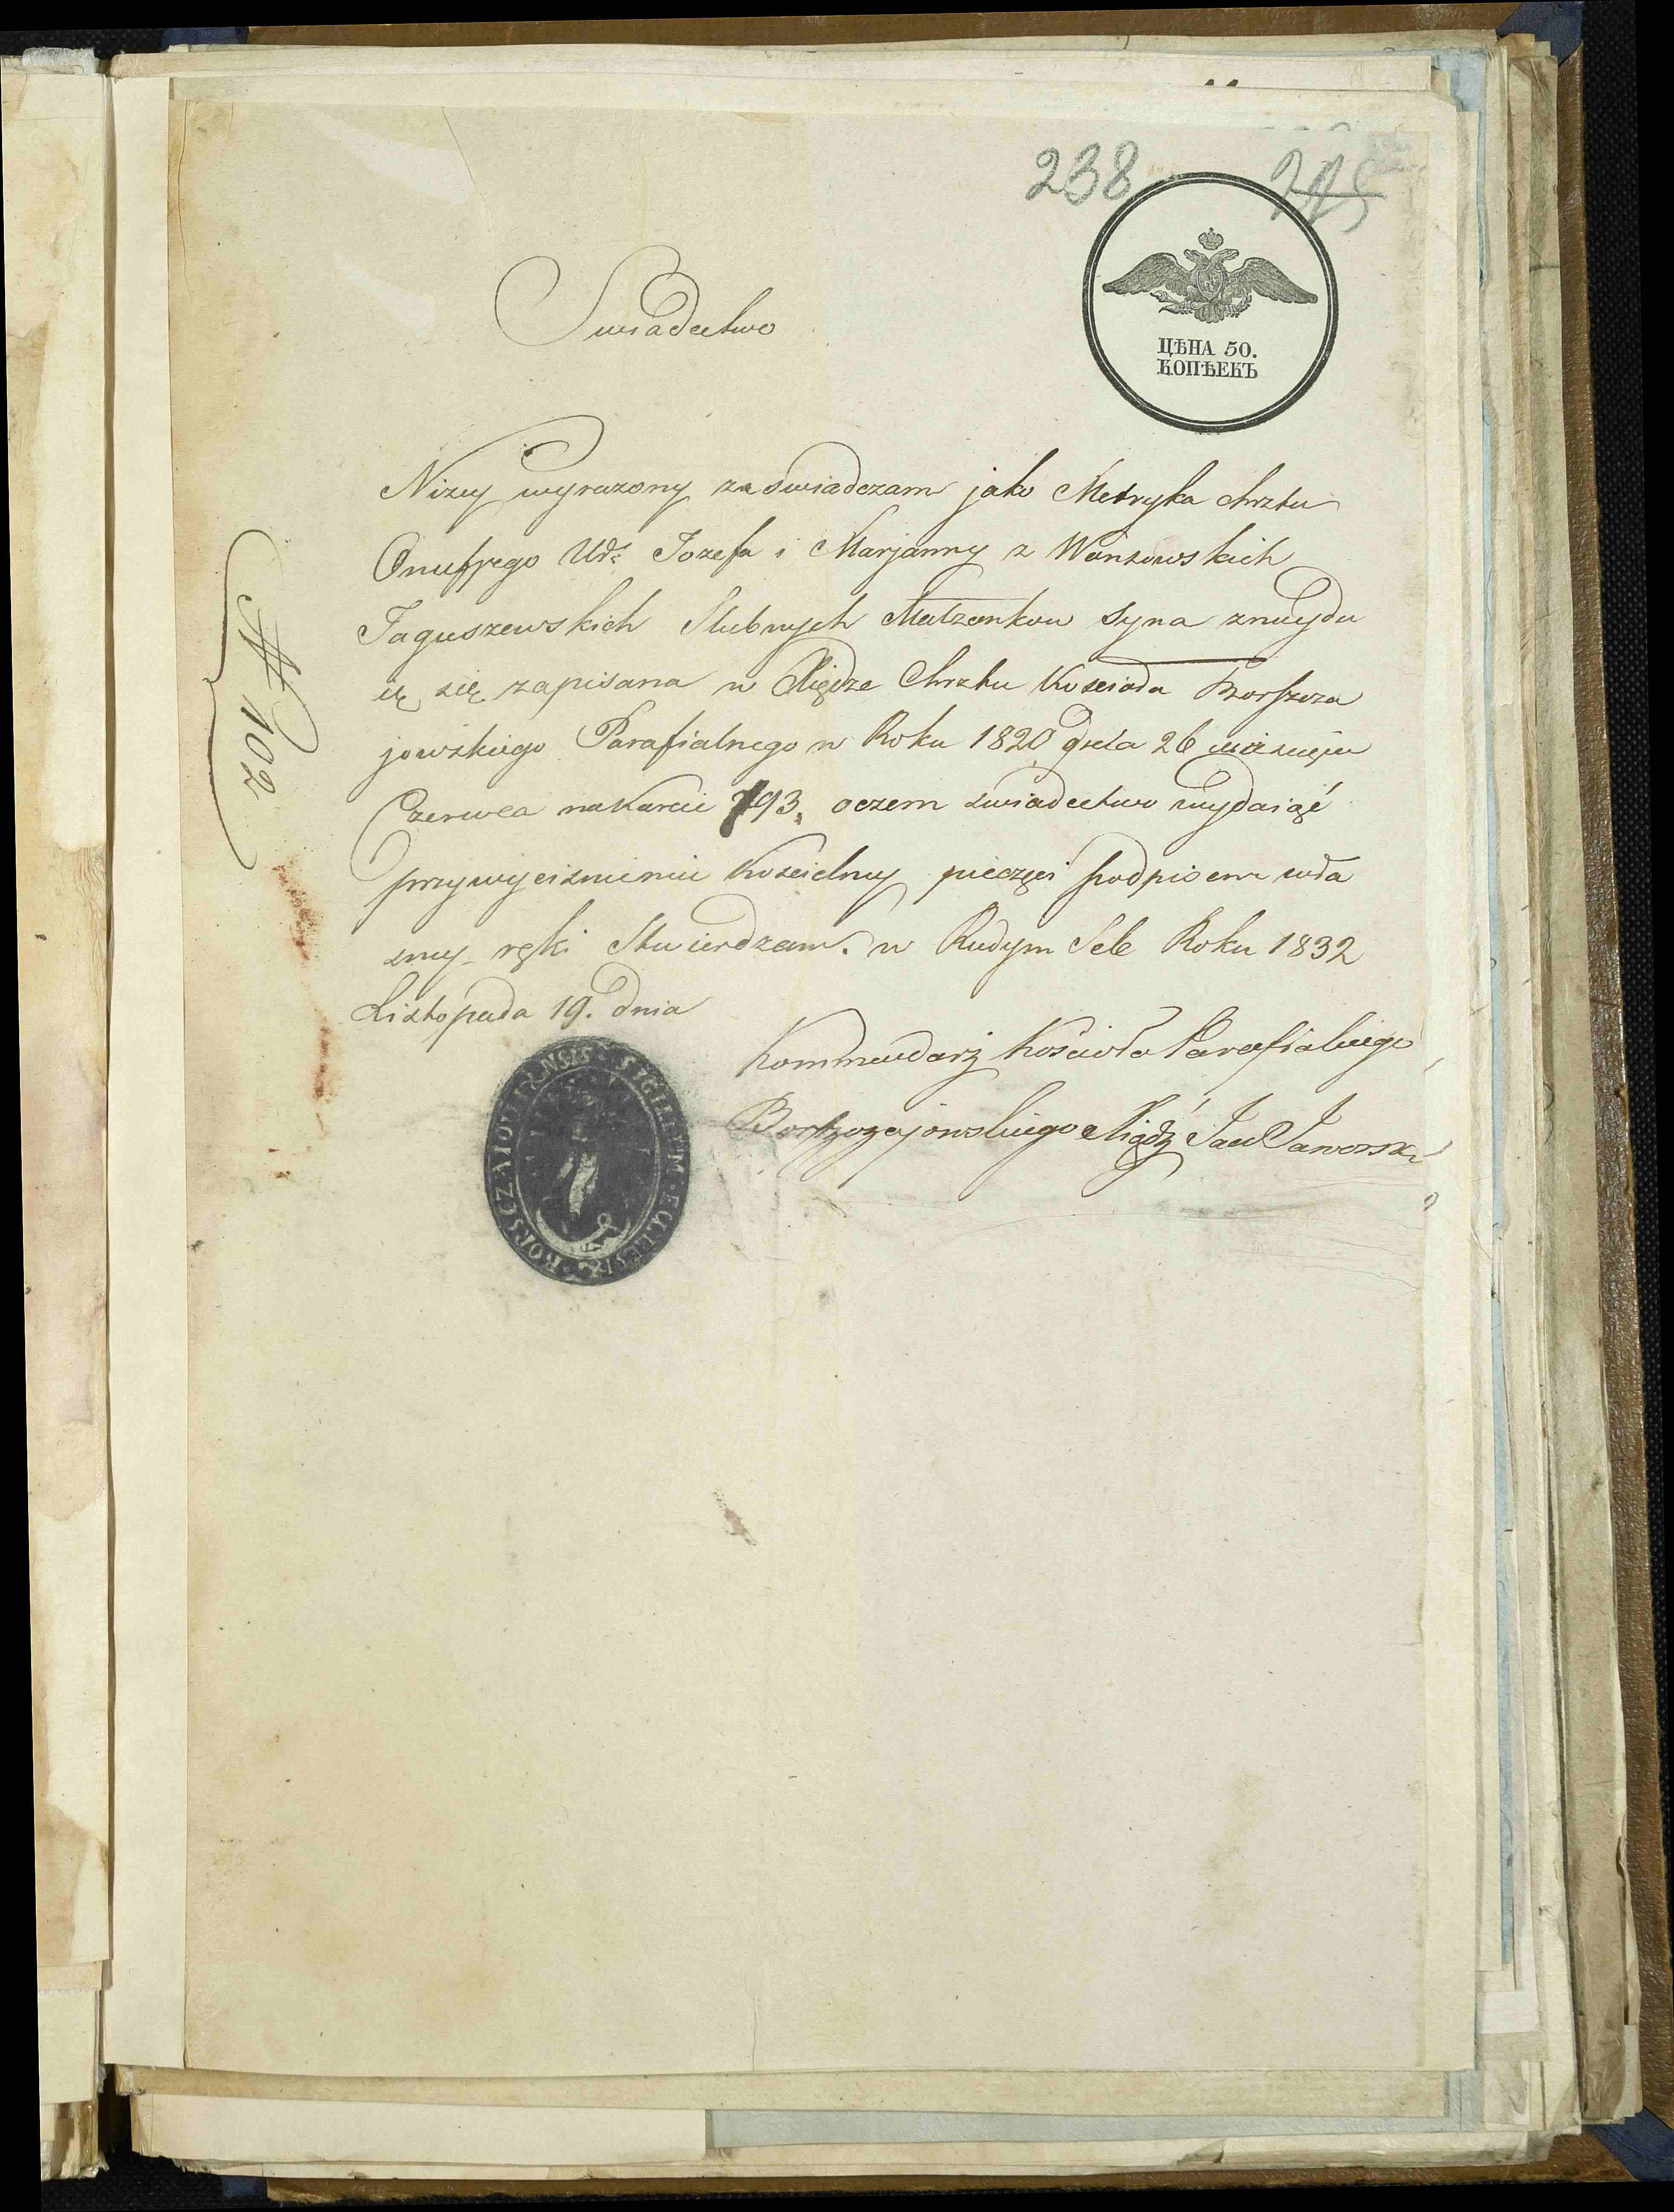 238
ЦѢНА 50.
КОПѢЕКЪ
Swiadectwo
Nizey wyrazony zaswiadczam jako Metryka chrztu
Onufrego Ur: Jozefa i Marjanny z Wonsowskich
Jaguszewskich Slubnych Matzonkow syna znaydu
ię się zapisana w Xiędze Chrztu Kosciola Borszcza
jowskiego Parafialnego w Roku 1820 dnia 26 miesięca
Czerwca nakarcie 793, oczem swiadectwo wydaiąć
przywyciznieniu Koscielney pieczęci podpisem wła
sney ręki Stwierdzam. w Rudym Sele Roku 1832
Listopada 19. dnia
Kommendarz Kościoła Parafialnego
Borszczajowskiego Xiądz Jan Jaworski
SIGILLUM ECCLESIÆ BORSCZAIOVIENSIS
№ 102